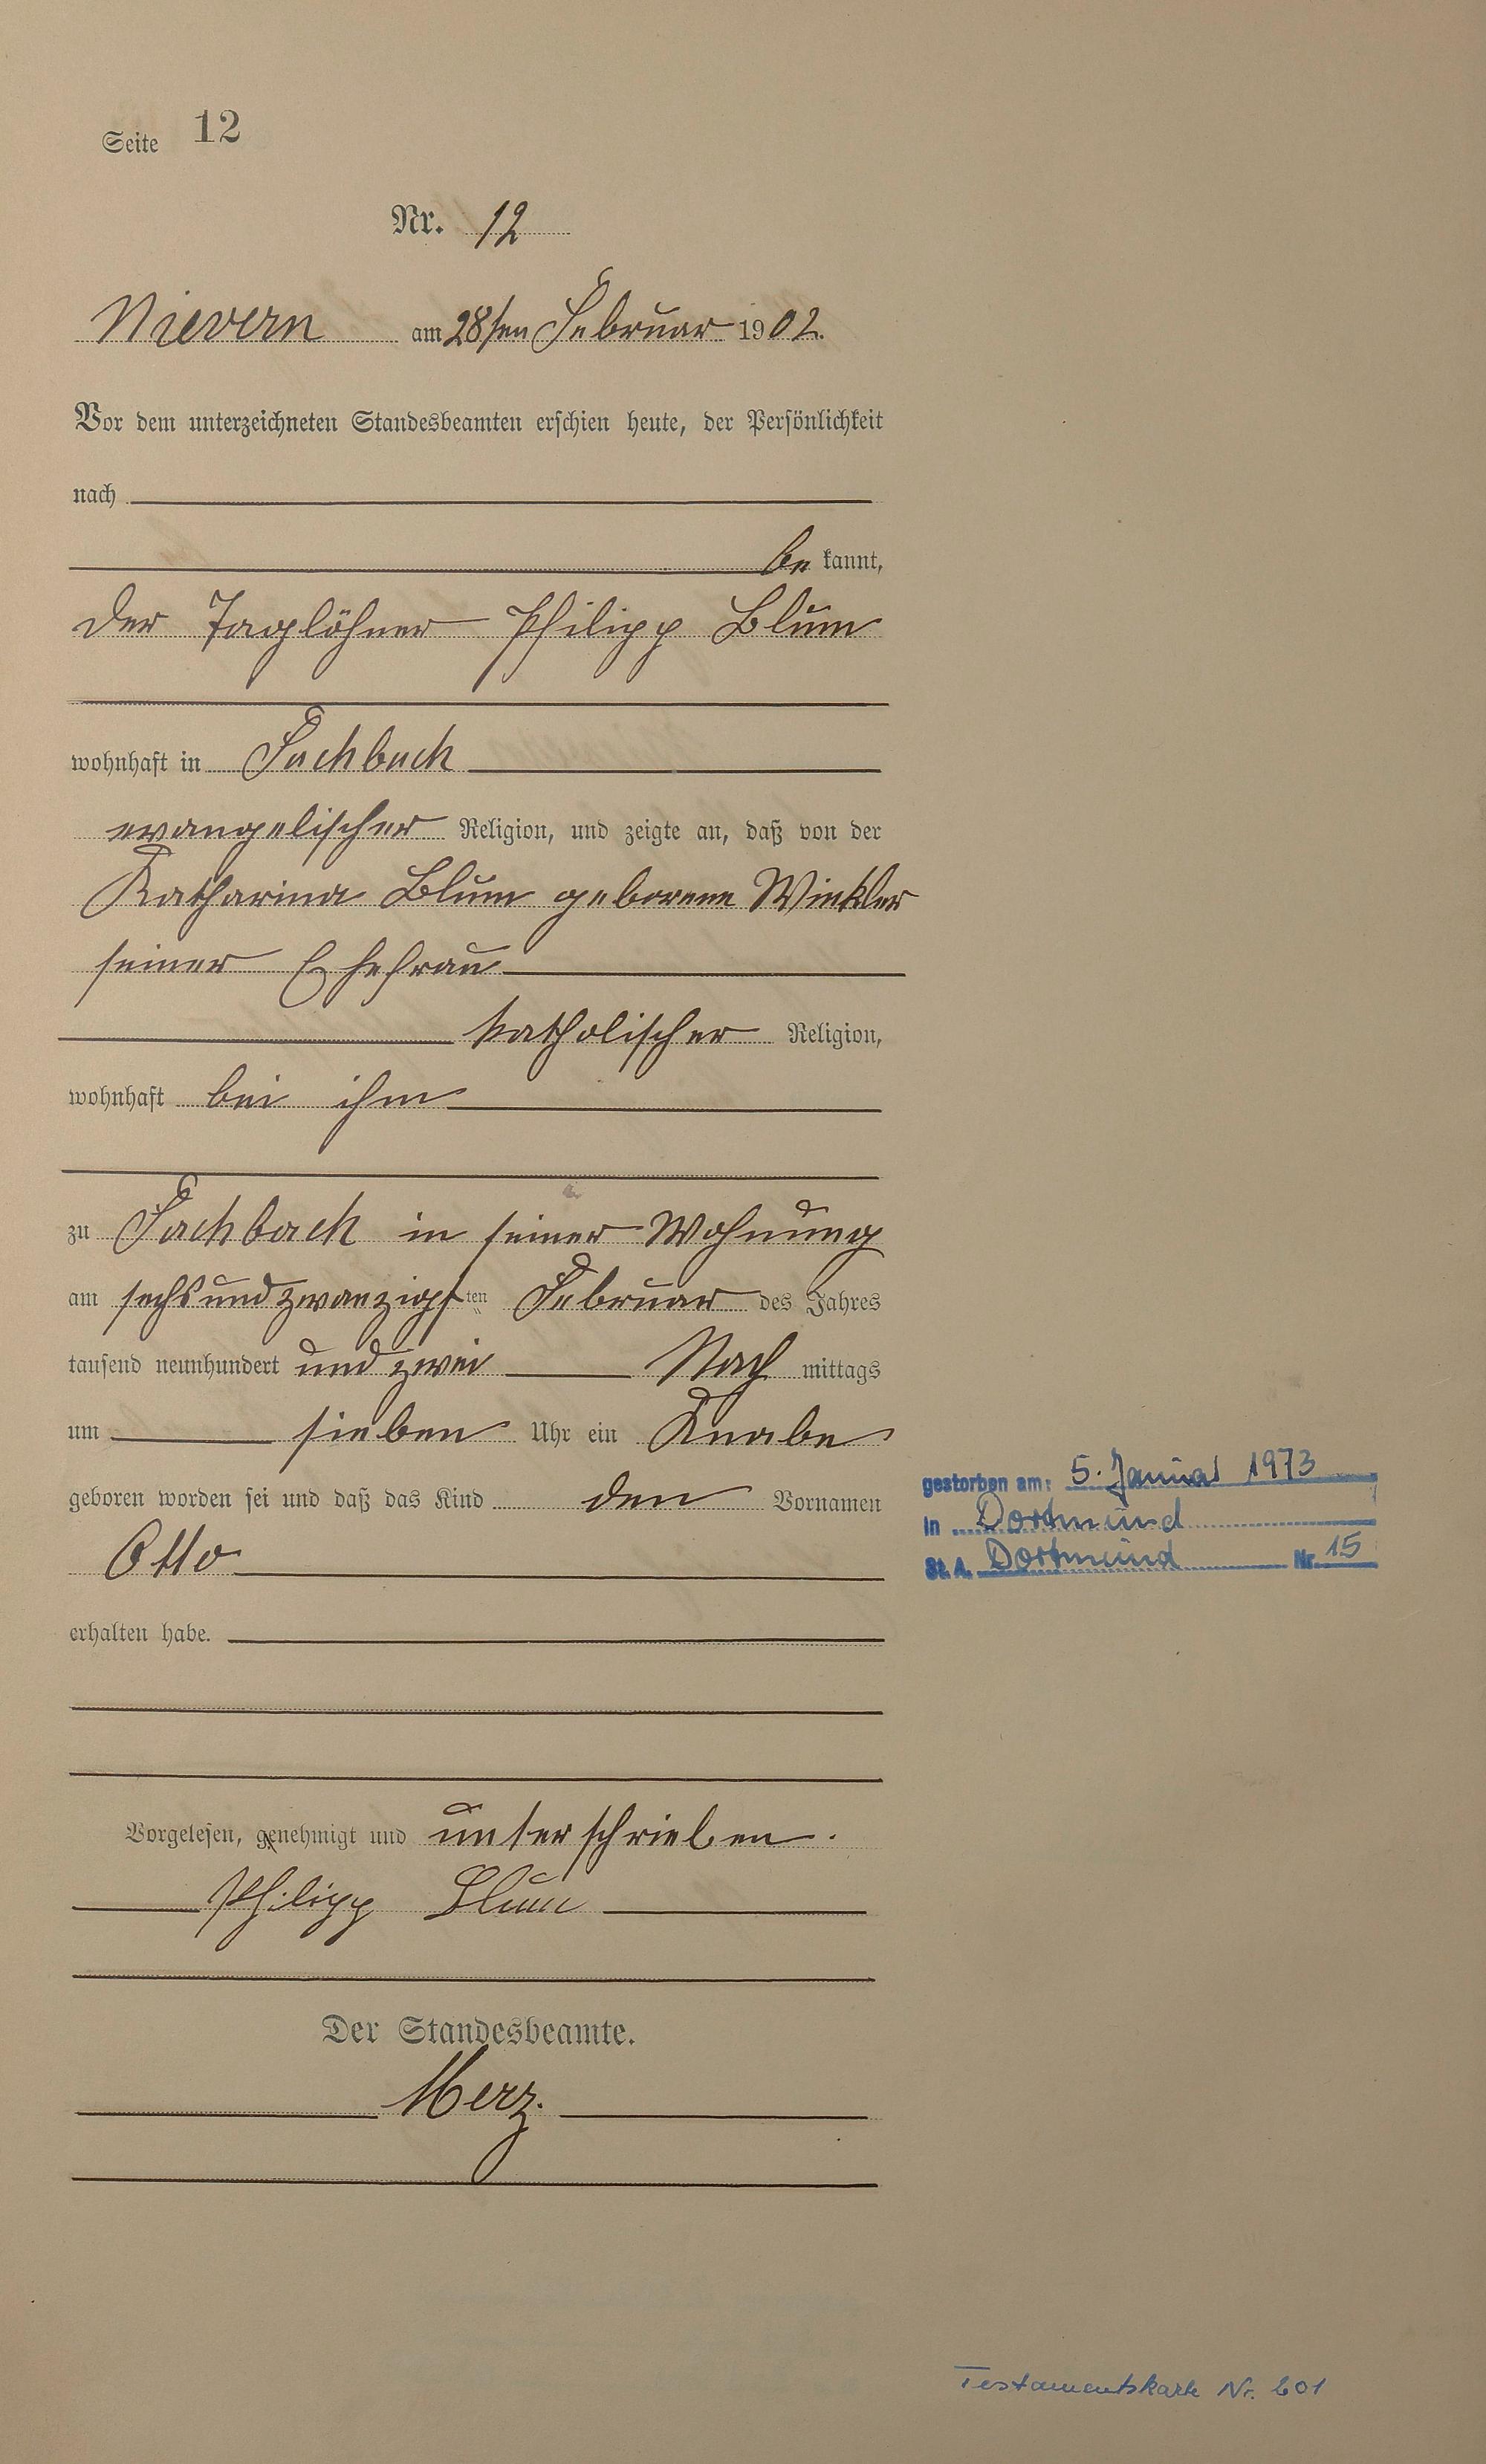 Seite 12
Nr. 12
Nievern am 28ten Februar 1902.
Vor dem unterzeichneten Standesbeamten erschien heute, der Persönlichkeit
nach
be kannt,
der Taglöhner Philipp Blum
wohnhaft in Fachbach
evangelischer Religion, und zeigte an, daß von der
Katharina Blum geborene Winkler
seiner Ehefrau
katholischer Religion,
wohnhaft bei ihm
zu Fachbach in seiner Wohnung
am sechsundzwanzigsten Februar des Jahres
tausend neunhundert und zwei Nach mittags
um sieben Uhr ein Knabe
geboren worden sei und daß das Kind den Vornamen
Otto
erhalten habe.
gestorben am: 5. Januar 1973
in Dortmund
St. A. Dortmund Nr. 15
Vorgelesen, genehmigt und unterschrieben.
Philipp Blum
Der Standesbeamte.
Merz.
Testamentskarte Nr. 601